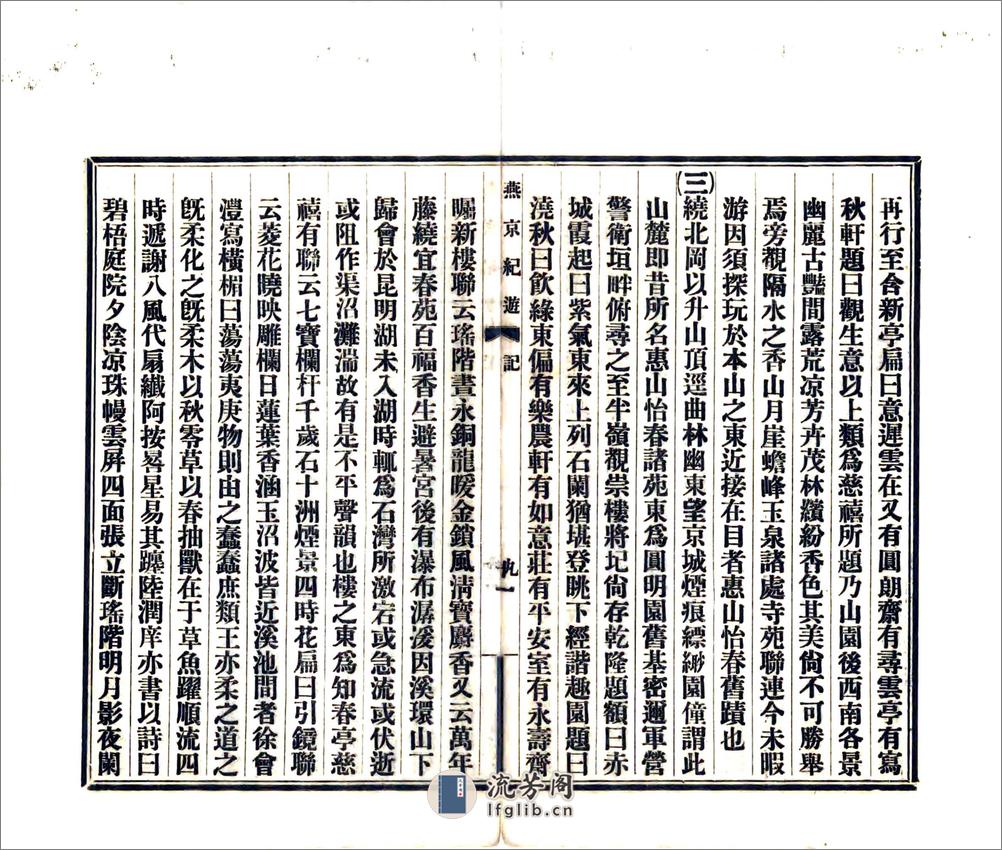 再行至含新亭扁曰意遲雲在又有圓朗齋有尋雲亭有寫
秋軒題曰觀生意以上類爲慈禧所題乃山園後西南各景
幽麗古豔間露荒凉芳卉茂林繽紛香色其美尙不可勝舉
焉旁觀隔水之香山月崖蟾峰玉泉諸處寺苑聯連今未暇
游因須探玩於本山之東近接在目者惠山怡春舊蹟也
(三)繞北岡以升山頂逕曲林幽東望京城煙痕縹緲園僮謂此
山麓即昔所名惠山怡春諸苑東爲圓明園舊基密邇軍營
警衛垣畔俯尋之至半嶺觀祟樓將圮尙存乾隆題額曰赤
城霞起曰紫氣東來上列石闌猶堪登眺下經諧趣園題曰
澆秋曰飲綠東偏有樂農軒有如意莊有平安室有永壽齊
燕京紀遊
記
九一
矚新樓聯云瑤階晝永銅龍暖金鎖風清寶麝香又云萬年
藤繞宜春苑百福香生避暑宮後有瀑布潺湲因溪環山下
歸會於昆明湖未入湖時輒爲石灣所激宕或急流或伏逝
或阻作渠沼灘湍故有是不平聲韻也樓之東爲知春亭慈
禧有聯云七寶欄杆千歲石十洲煙景四時花扁曰引鏡聯
云菱花曉映雕欄日蓮葉香涵玉沼波皆近溪池間者徐會
灃寫橫楣曰蕩蕩夷庚物則由之蠢蠢庶類王亦柔之道之
旣柔化之旣柔木以秋零草以春抽獸在于草魚躍順流四
時遞謝八風代扇纖阿按晷星易其躔陸潤庠亦書以詩曰
碧梧庭院夕陰凉珠幔雲屛四面張立斷瑤階明月影夜闌
流芳阁
lfglib.cn